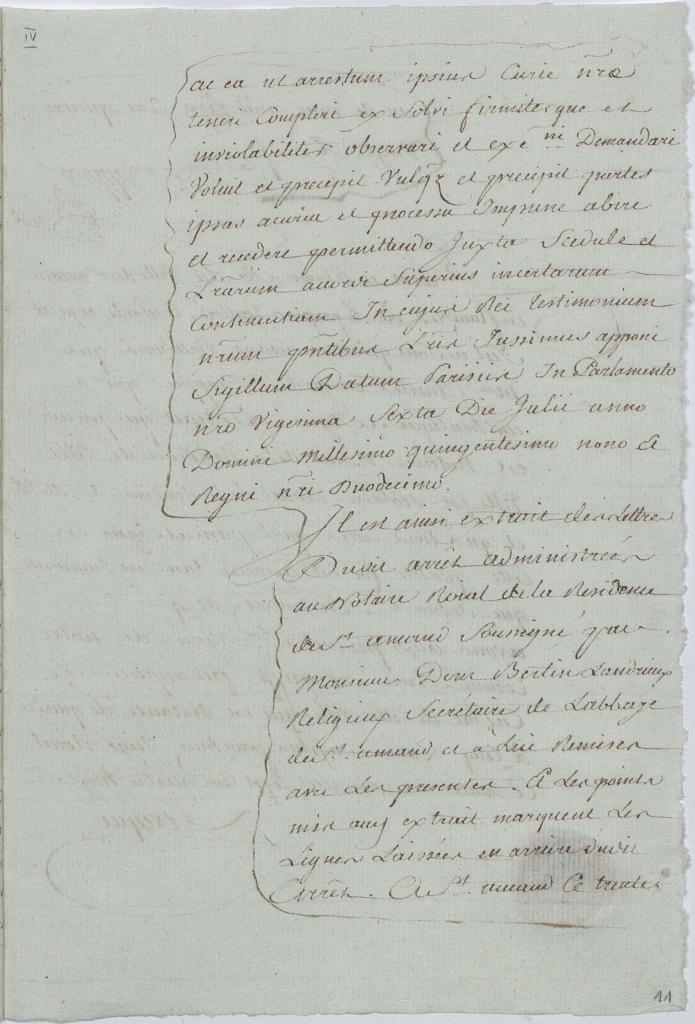 IV
ac ea ut arrestum ipsius Curie nr̃æ
teneri Compleri ex Solvi firmiterque et
inviolabiliter observari et exe.ni Demandari
Voluit et precepit Vulq₃ et precipit partes
ipsas acuria et processu Impune abire
et recedere permittendo Juxta Scedule et
Lr̃arum accordi Superius incertarum
Continentiam In cujus Rei testimonium
nr̃um pñtibus Lr̃is Jussimus apponi
Sigillum Datum Parisiis In Parlamento
nr̃o Vigesima Sexta Die Julii anno
Domini Millesimo quingentesimo nono Et
Regni nr̃i Duodecimo.
Il est ainsi extrait des Lettres
Dudit arrêt administrées
au Notaire Roial de la Residence
de St. amand Soussigné par
Monsieur Dom Bertin Landrieux
Religieux Secrétaire de Labbaye
de St. amand et à Lui Remises
avec Les presentes. Et Les points
mis auq extrait marquent Les
Lignes Laissées en arriere dudit
Arrêt. A St. amand Ce trente
11